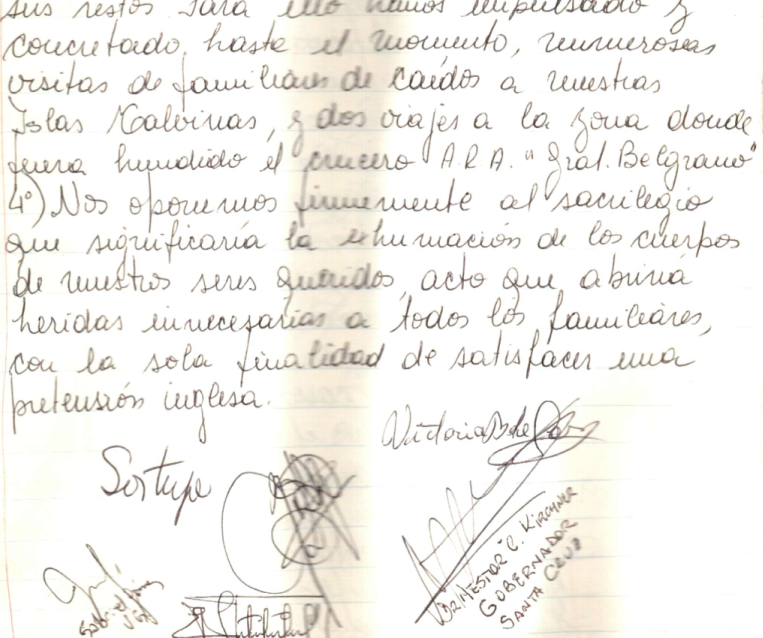 sus restos Para ello hemos impulsado y
concretado, hasta el momento, numerosas
visitas de familiares de caídos a nuestras
Islas Malvinas, y dos viajes a la zona donde
fuera hundido el crucero A.R.A. "Gral. Belgrano"
4º) Nos oponemos firmemente al sacrilegio
que significaría la exhumación de los cuerpos
de nuestros seres queridos, acto que abriría
heridas innecesarias a todos los familiares,
con la sola finalidad de satisfacer una
pretensión inglesa.
Victoria
DR. NESTOR C. KIRCHNER
GOBERNADOR
SANTA CRUZ